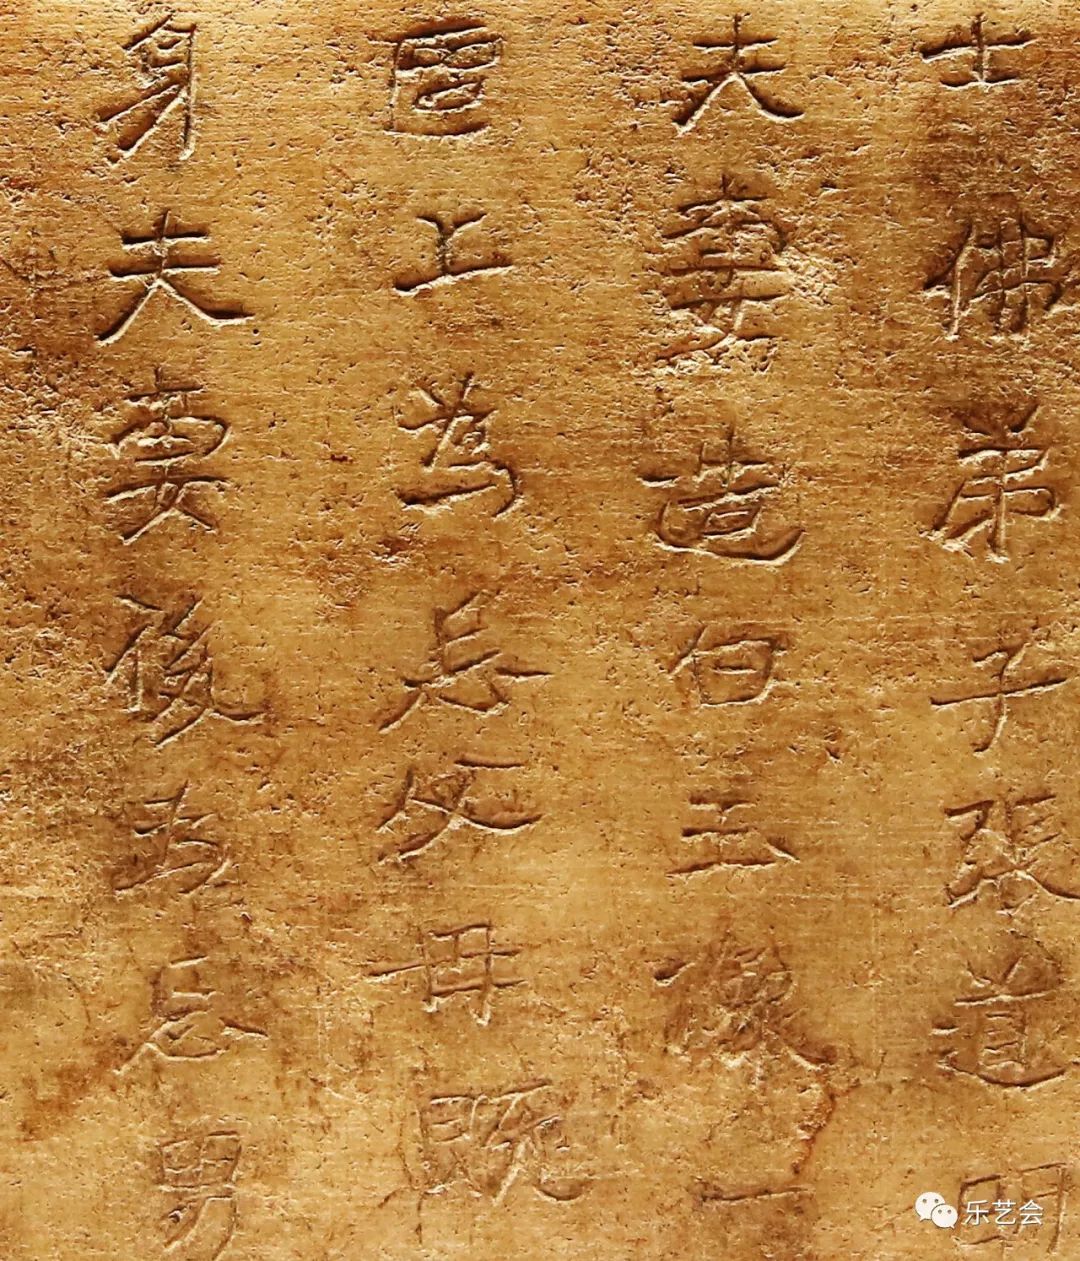 士佛弟子張道明
夫妻造白玉像一
區上為亡父母既
身夫妻後為亡男
乐艺会